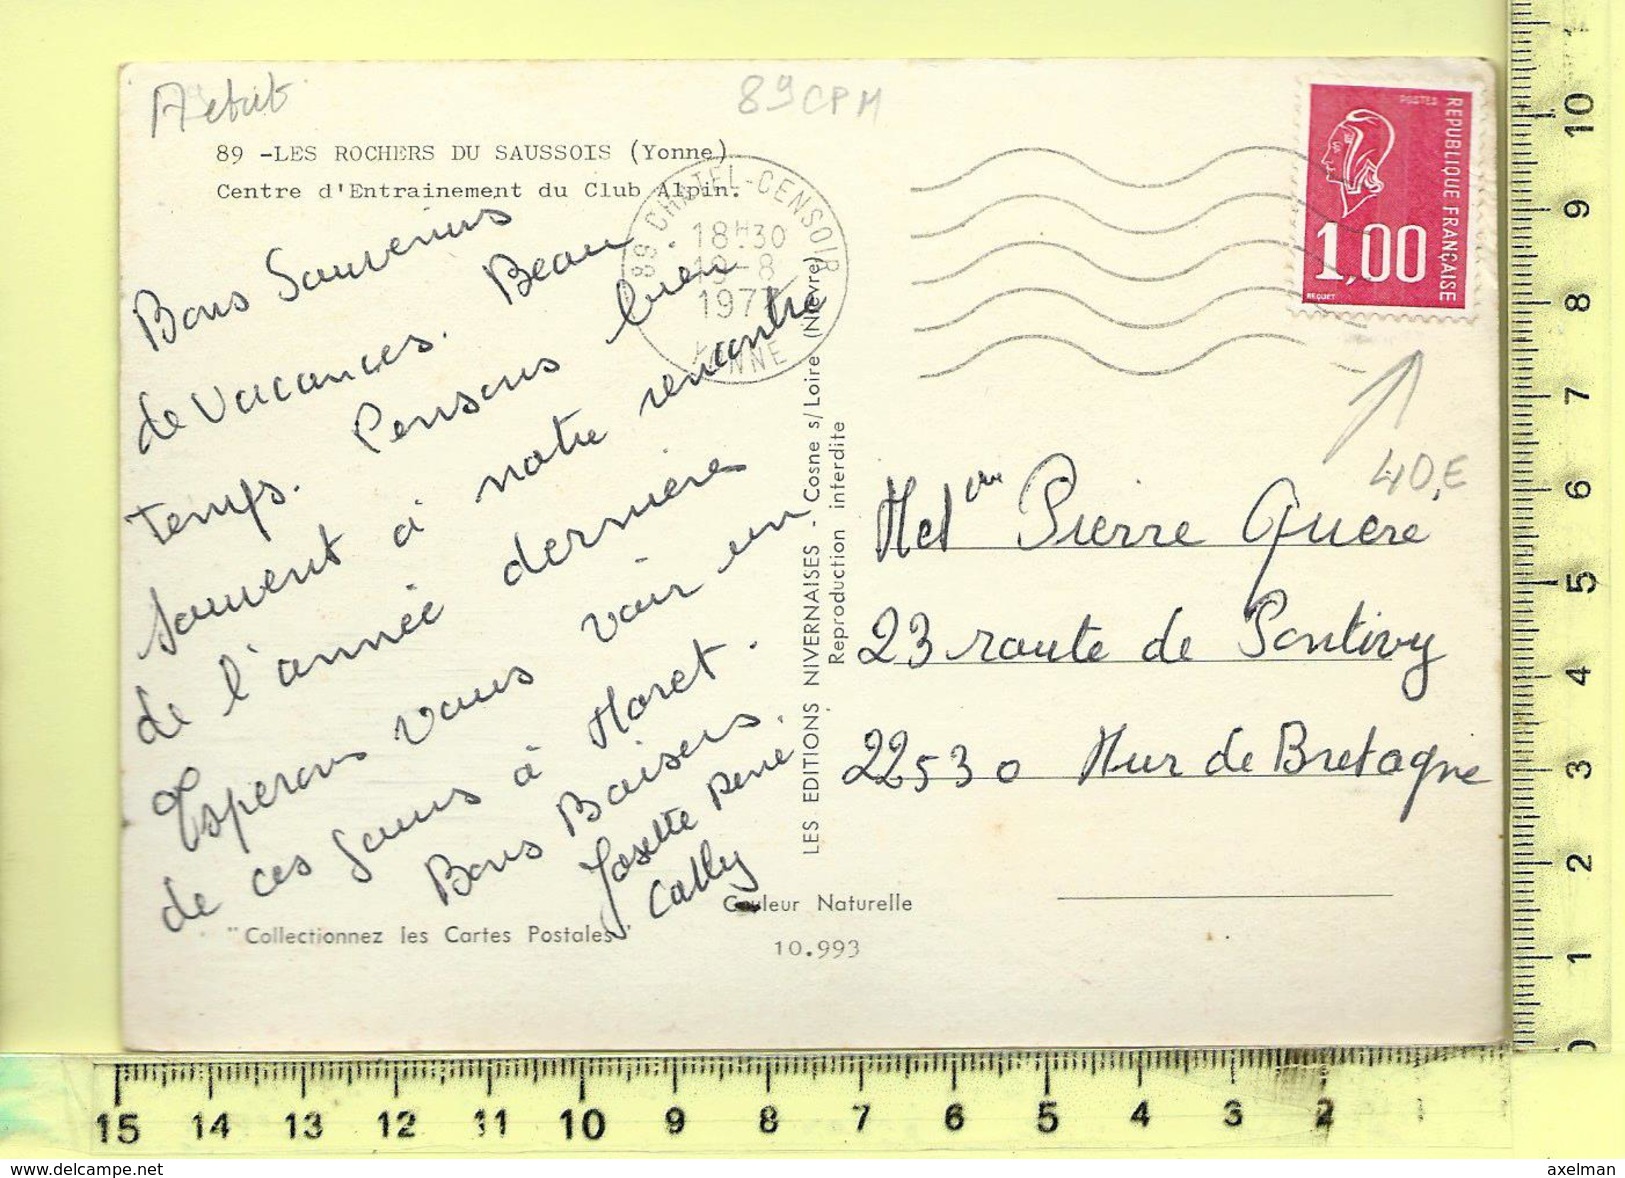 Aetat
89 CPM
89 -LES ROCHERS DU SAUSSOIS (Yonne)
Centre d'Entrainement du Club Alpin.
89 CHATEL-CENSOIR
18H30
19-8
1977
YONNE
POSTES
REPUBLIQUE FRANÇAISE
1,00
BEQUET
40,E
Bons Souvenirs
de vacances. Beau
temps. Pensons bien
souvent à notre rencontre
de l'année dernière
Esperons vous voir un
de ces jours à Moret.
Bons Baisers.
Josette René
Cathy
LES EDITIONS NIVERNAISES - Cosne s/Loire (Nièvre)
Reproduction interdite
Pierre Quéré
23 route de Pontivy
22530 Mur de Bretagne
Couleur Naturelle
"Collectionnez les Cartes Postales"
10.993
10
9
8
7
6
5
4
3
2
1
0
15 14 13 12 11 10 9 8 7 6 5 4 3 2 1
www.delcampe.net
axelman